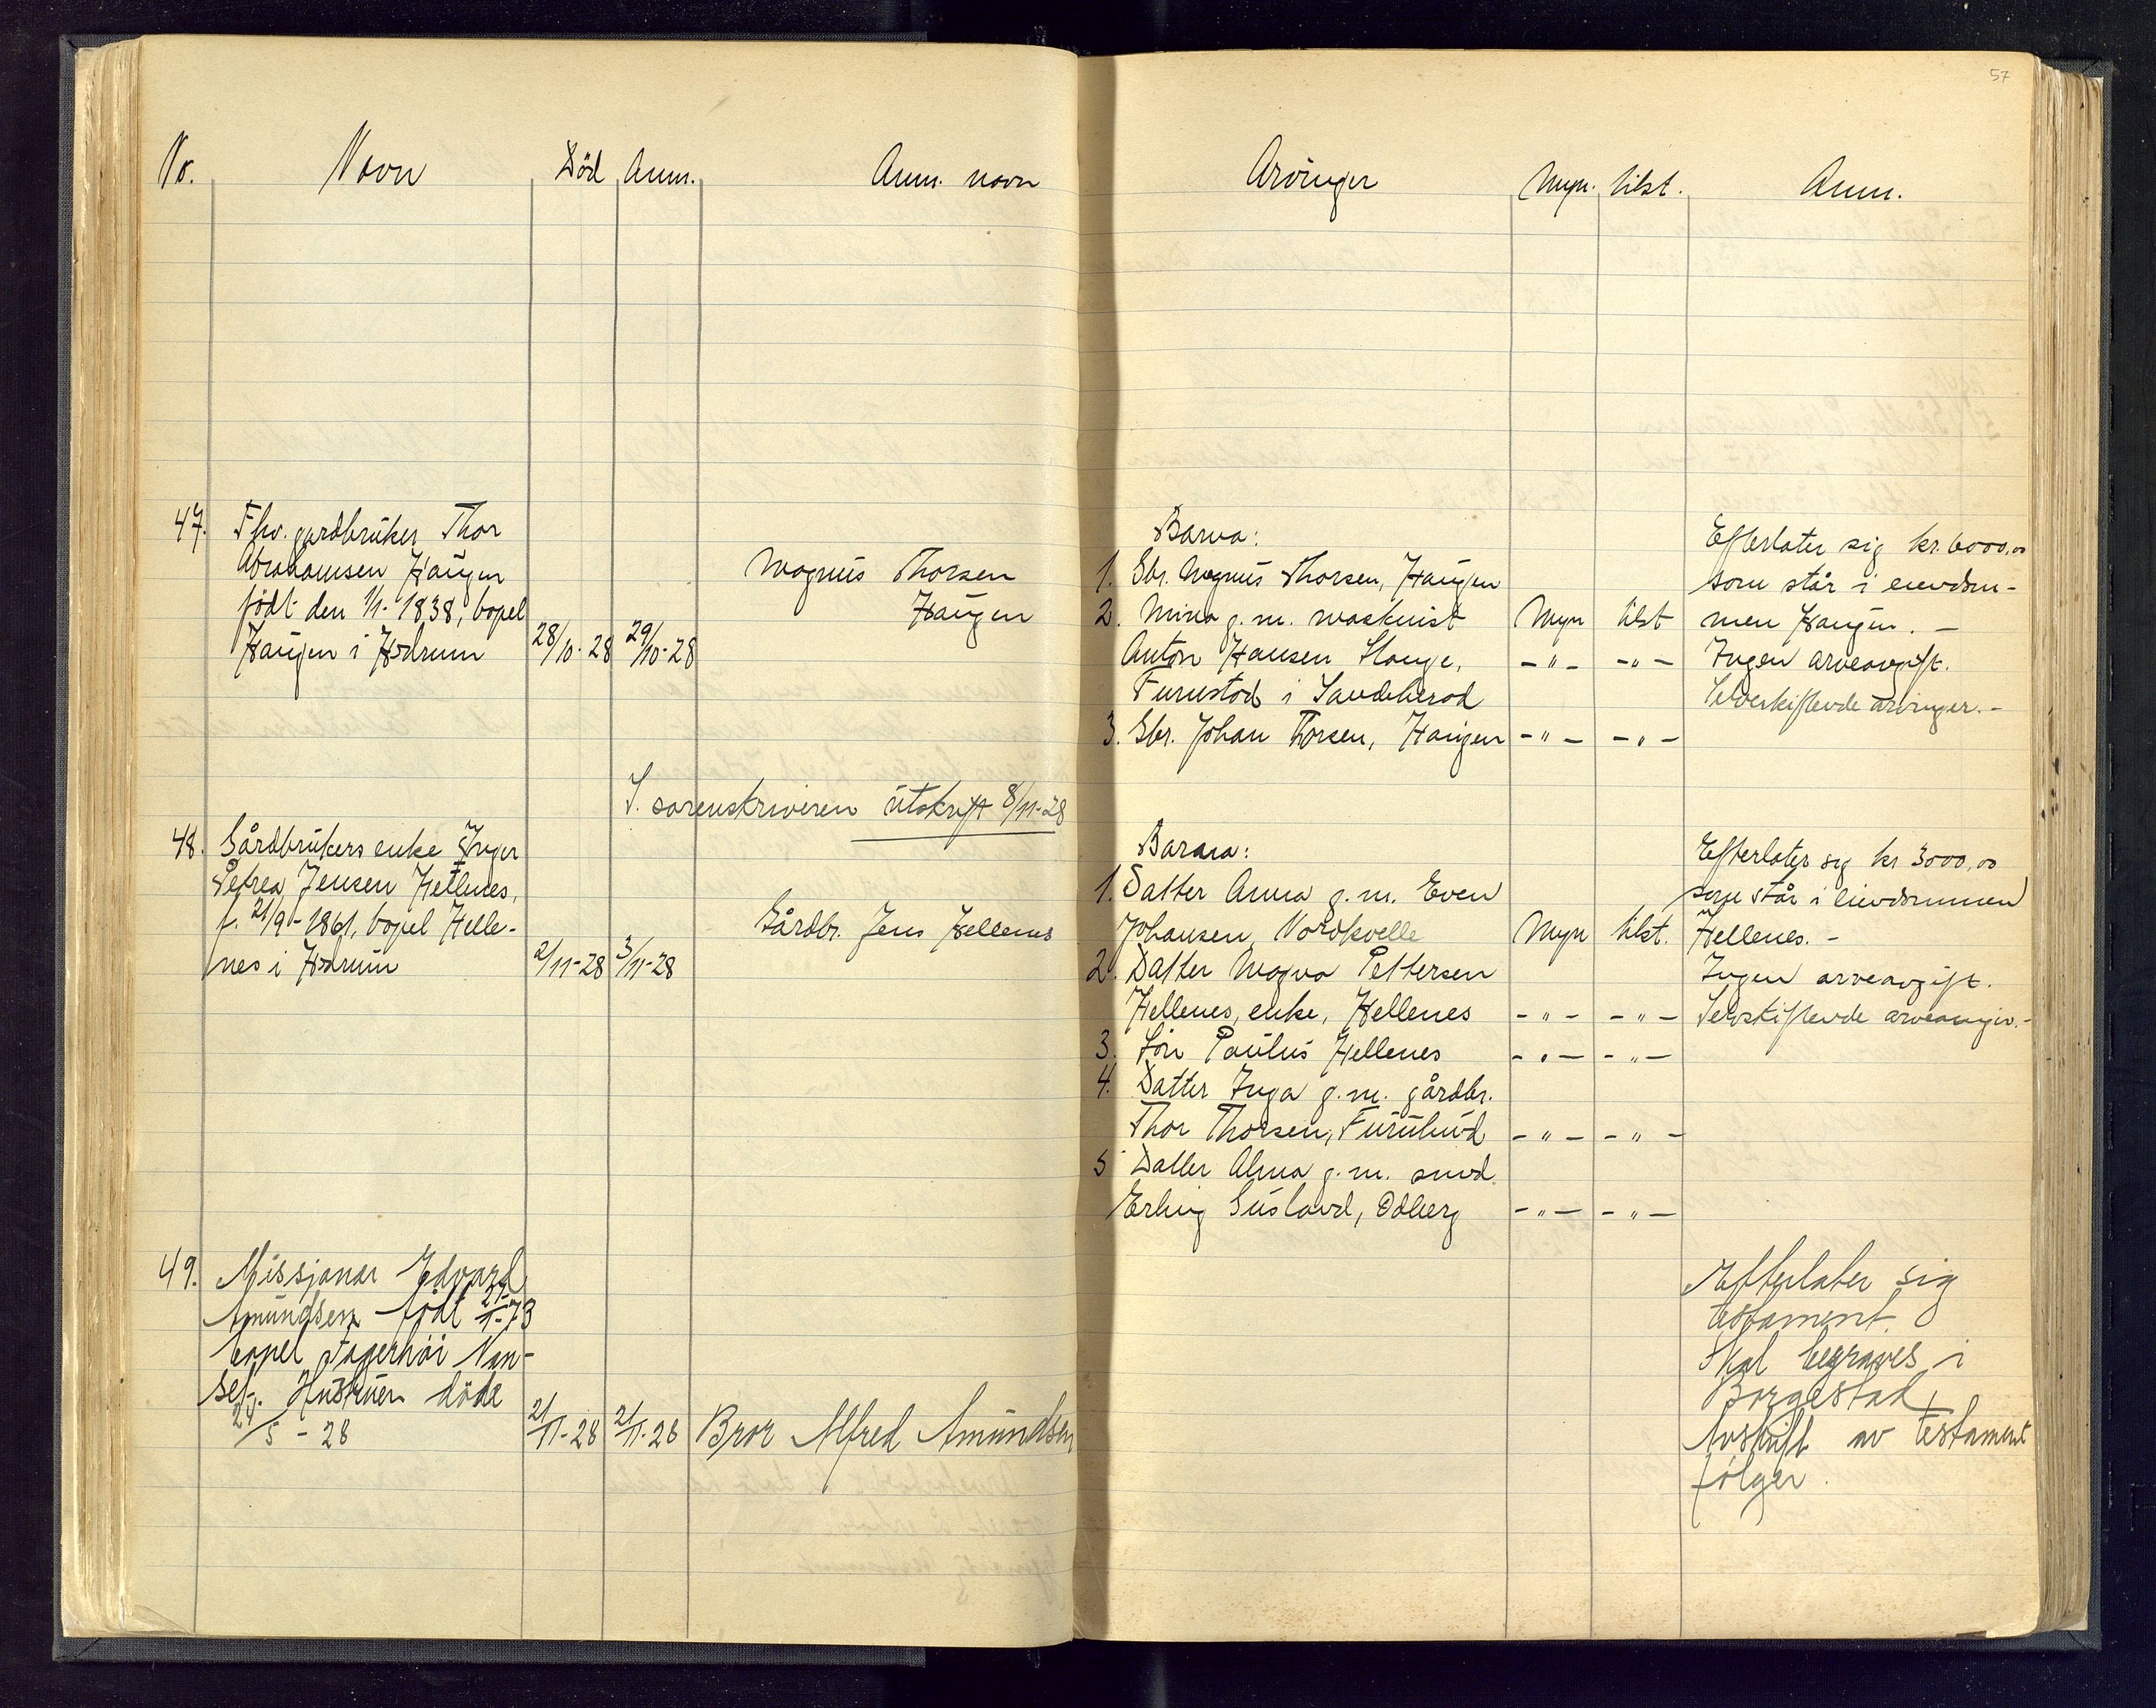 57
No. Navn Död Anm. Anm. navn
Arvinger Myn. tilst. Anm.
47. Fhv. gardbruker Thor
Abrahamsen Haugen
födt den 1/1-1838, bopel
Haugen i Hedrum 28/10-28 29/10-28
Magnus Thorsen
Haugen
Barna:
1. Gbr. Magnus Thorsen, Haugen
2. Mina g.m. maskinist Myn tilst
Anton Hansen Hauge, -"- -"-
Furustad i Sandeherad
3. Gbr. Johan Thorsen, Haugen -"- -"-
Efterlater sig kr. 6000,00
som står i eiendom-
men Haugen. -
Ingen arveavgift.
Selvskiftende arvinger. -
T. sorenskriveren utskrift 8/11-28
48. Gårdbrukers enke Inger
Petrea Jensen Hellenes,
f. 21/9-1861, bopel Helle-
nes i Hedrum 2/11-28 3/11-28
Gårdbr. Jens Hellenes
Barna:
1. Datter Anna g.m. Even
Johansen Nordkvelle Myn tilst.
2. Datter Magna Pettersen
Hellenes, enke, Hellenes -"- -"-
3. Sön Paulus Hellenes -"- -"-
4. Datter Inga g.m. gårdbr.
Thor Thorsen, Furulund -"- -"-
5 Datter Alma g.m. smed
Erling Gusland, Odberg -"- -"-
Efterlater sig kr 3000,00
som står i eiendommen
Hellenes. -
Ingen arveavgift.
Selvskiftende
49. Missjonær Edvard
Amundsen födt 21/1-73
bopel Fagerhöi Nan-
set. Hustruen döde
24/5-28 21/11-28 21/11-28 Bror Alfred Amundsen
Efterlater sig
testament.
Skal begraves i
Borgestad
Avskrift av testament
følger.